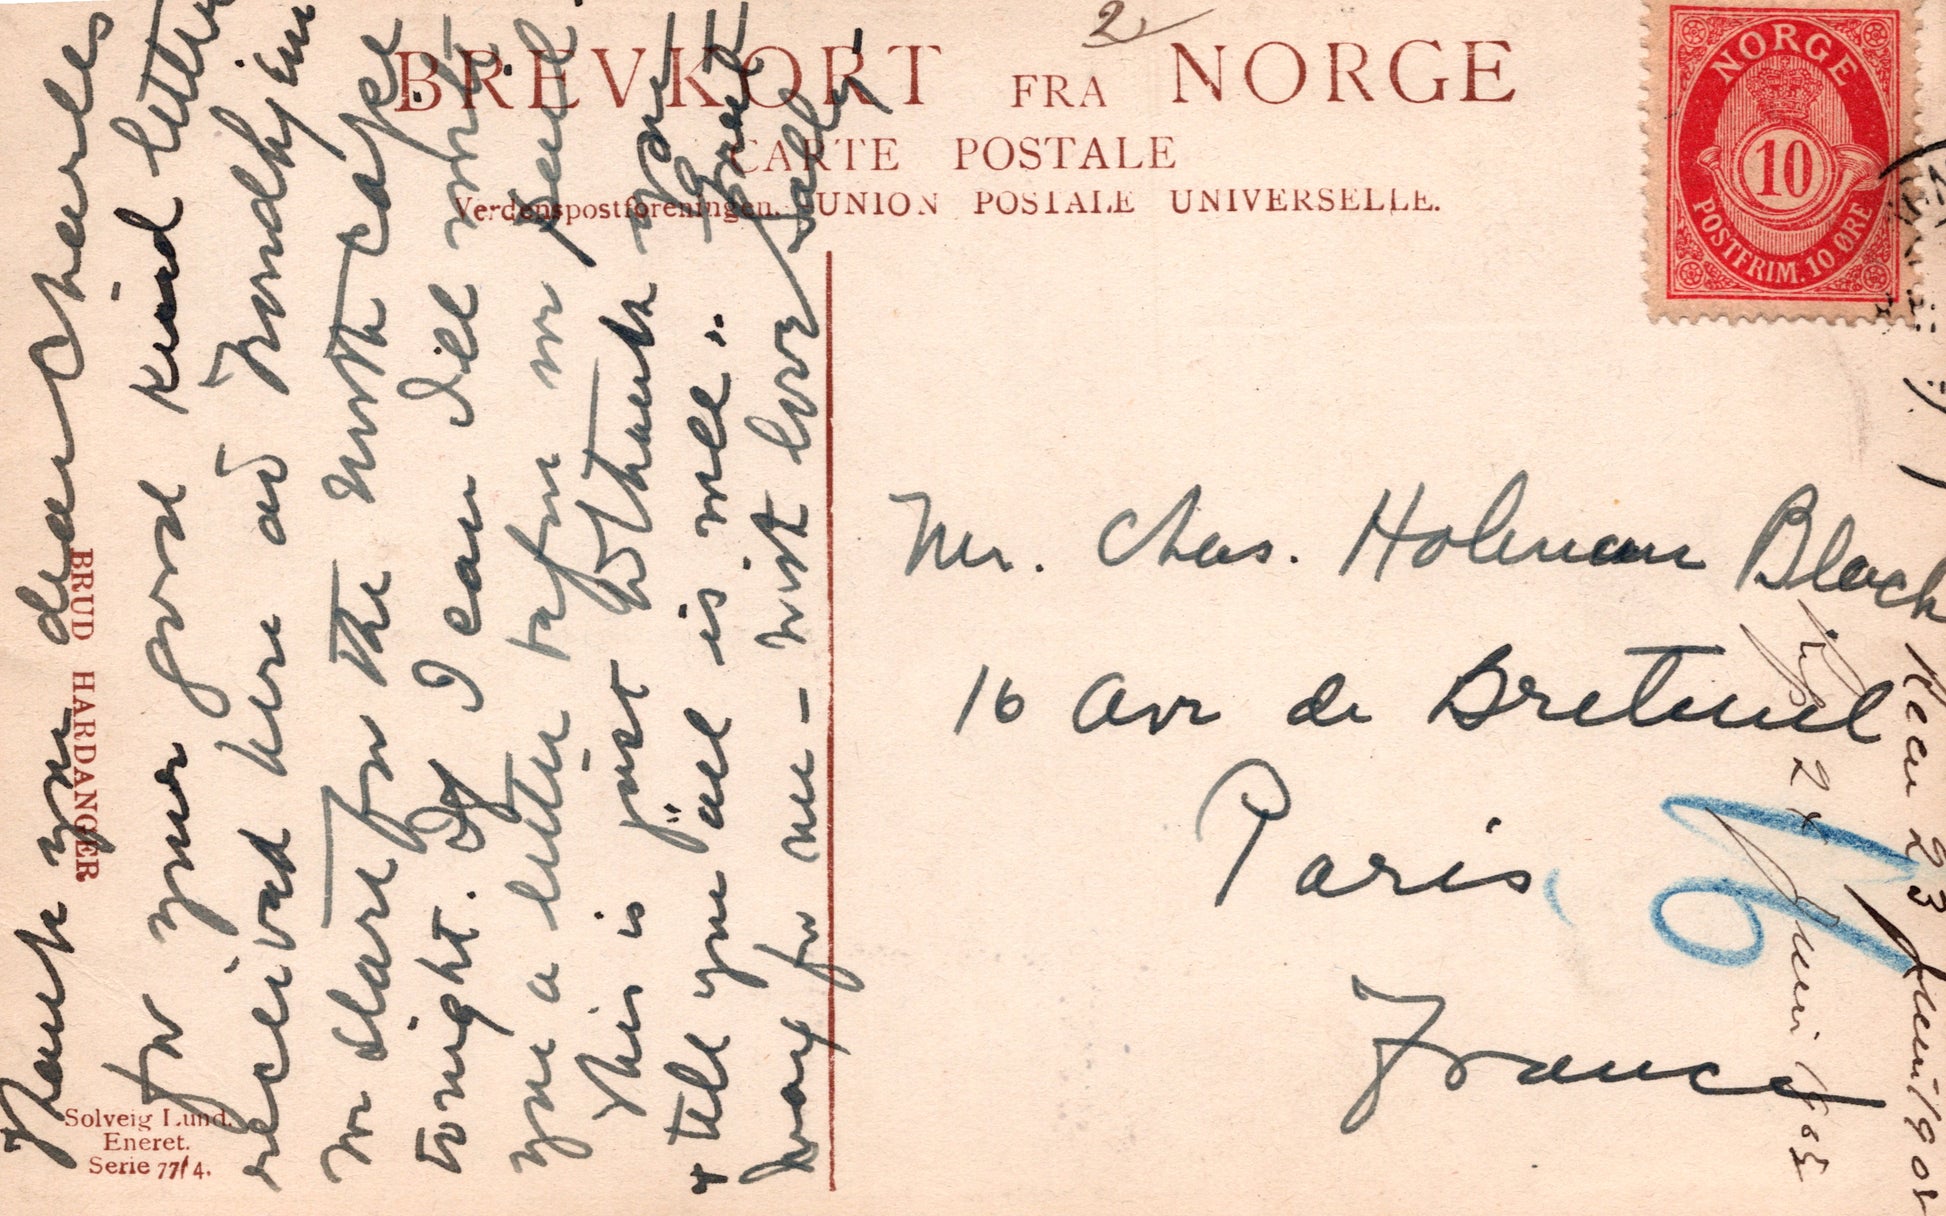 2
BREVKORT FRA NORGE
CARTE POSTALE
Verdenspostforeningen. UNION POSTALE UNIVERSELLE.
NORGE
10
POSTFRIM. 10 ØRE
BRUD HARDANGER
Solveig Lund.
Eneret.
Serie 77/4.
Thank you dear Charles
for your good kind letter
received here at Trondhjem
we start for the North Cape
tonight. If I can I'll write
you a letter in pencil
This is just to thank you
& tell you "all is well" great
for me - with love Sally
Mr. Chas. Holman Black
16 Ave de Breteuil
Paris
France
Recu 23 Juin 1908
Rep 24 Juin 1908